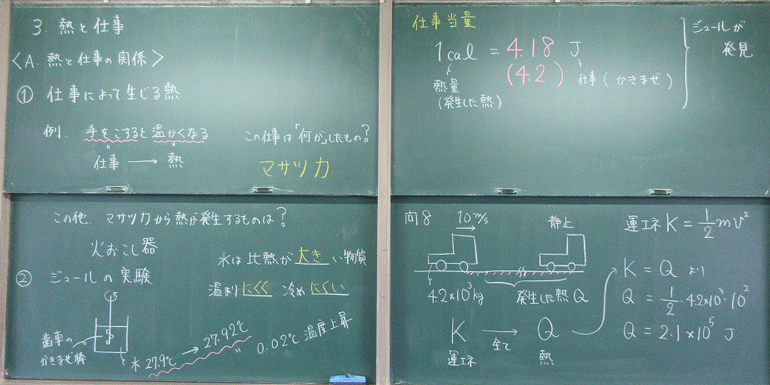 3. 熱と仕事
〈A. 熱と仕事の関係〉
① 仕事によって生じる熱
例. 手をこすると温かくなる
仕事 → 熱
この仕事は「何が」したもの?
マサツ力
この他、マサツ力から熱が発生するものは?
火おこし器
② ジュールの実験
歯車の
かきまぜ棒
水 27.9℃ → 27.92℃
0.02℃ 温度上昇
水は比熱が大きい物質
温まりにくく 冷めにくい
仕事当量
1cal = 4.18 J
(4.2)
熱量
(発生した熱)
仕事(かきまぜ)
ジュールが
発見
問8
10m/s
静止
4.2×10³kg
発生した熱Q
K → Q
全て
運エネ
熱
運エネ K = 1/2 mv²
K = Q より
Q = 1/2・4.2×10³・10²
Q = 2.1×10⁵ J